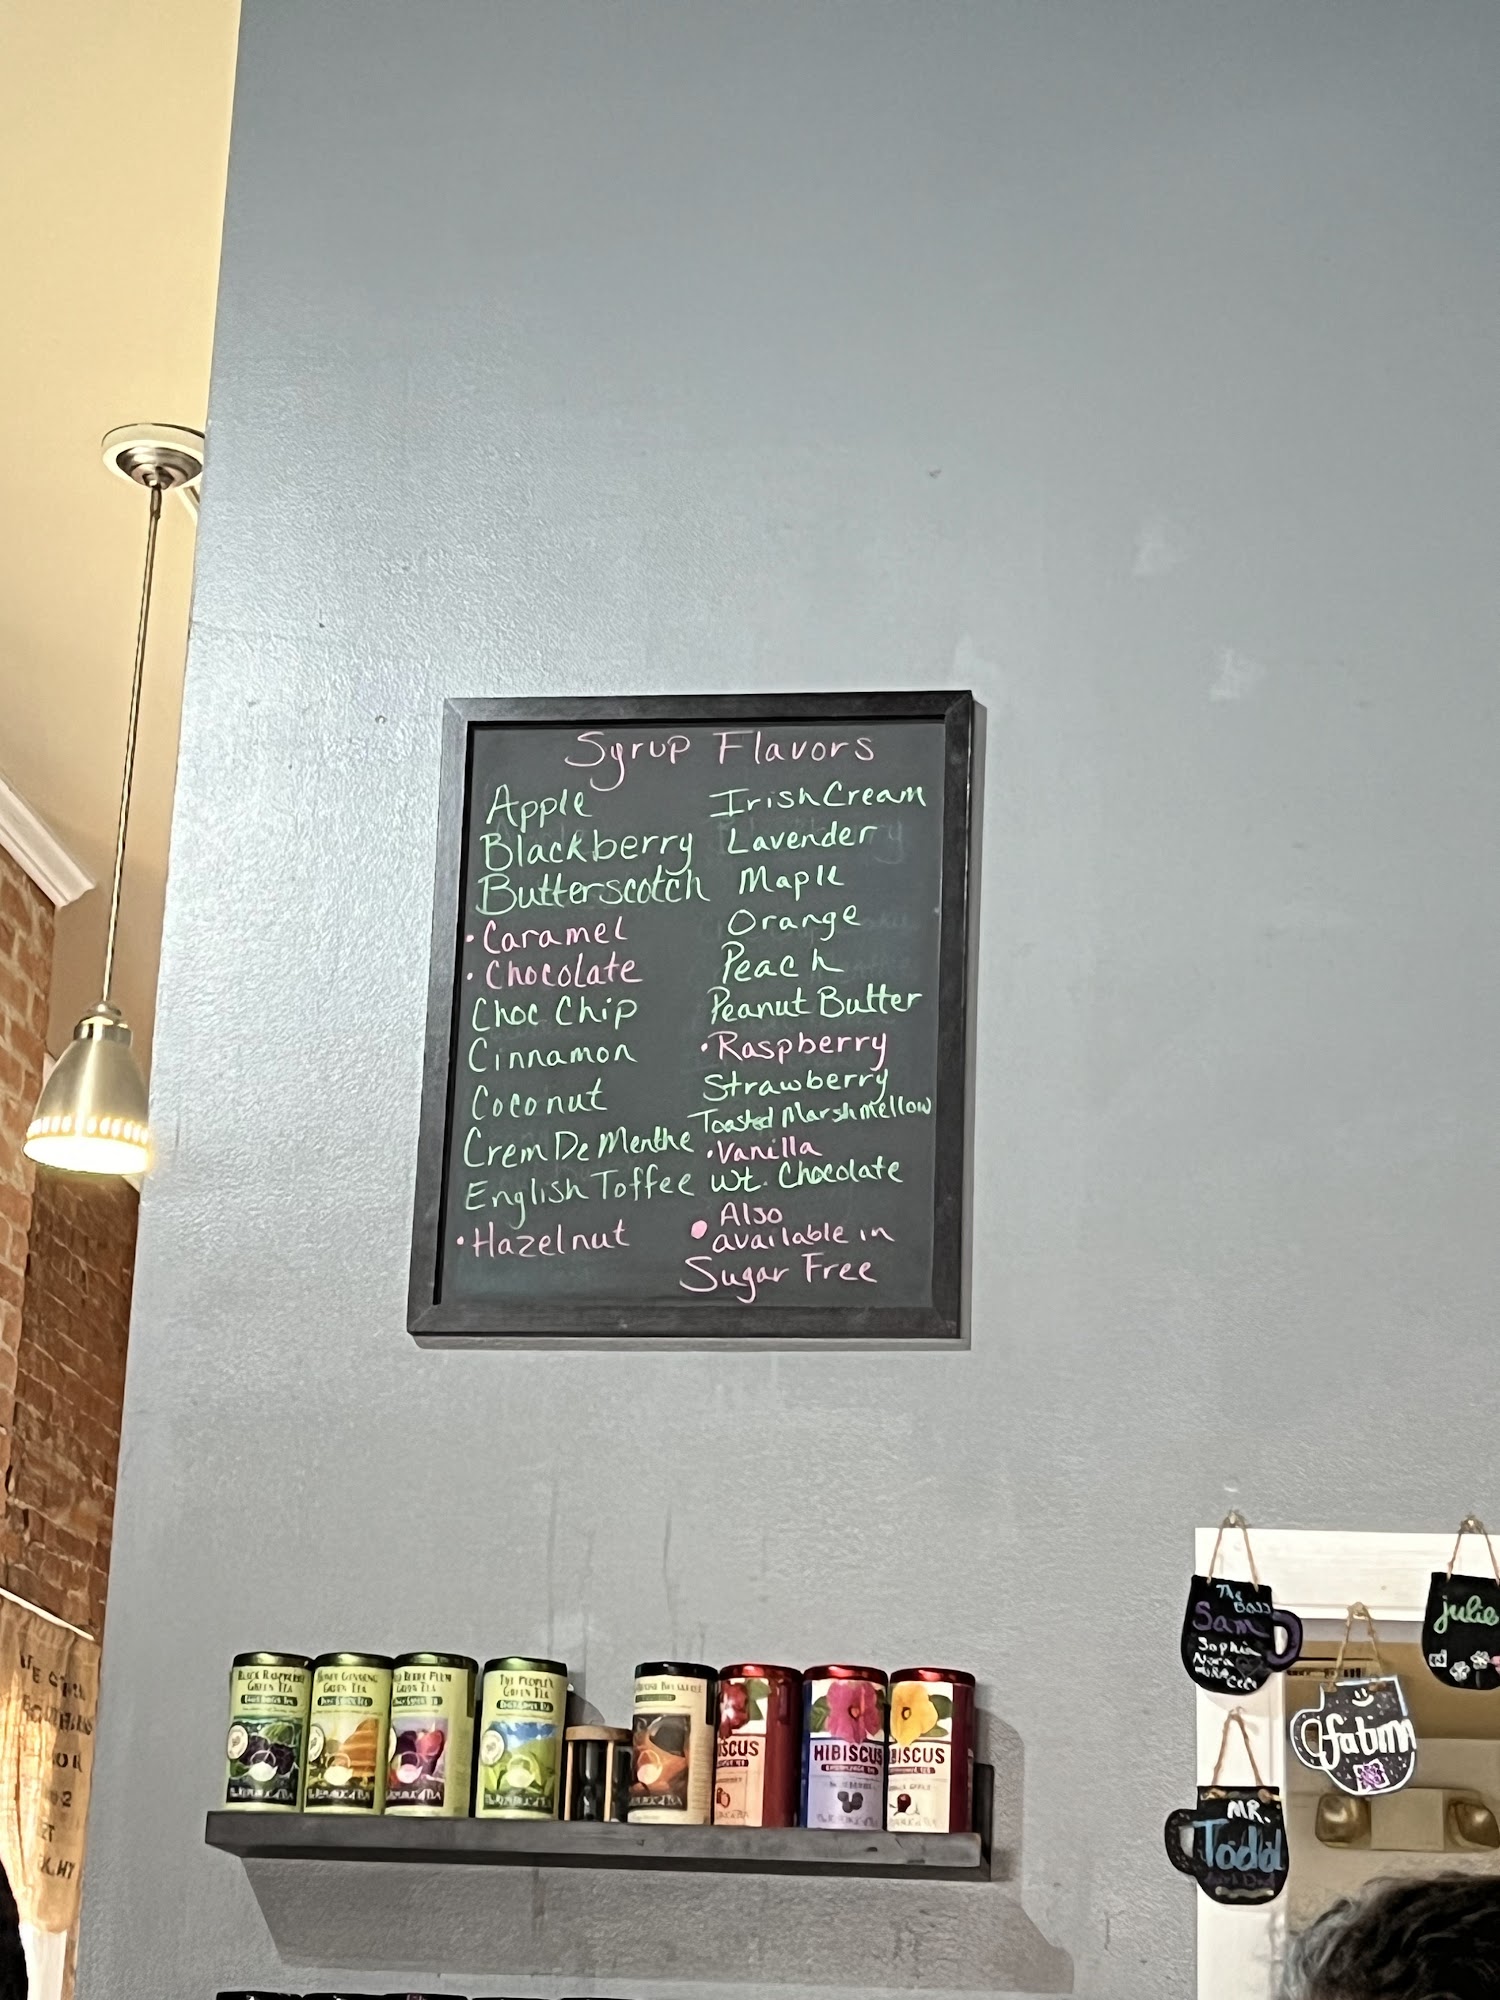 Syrup Flavors
Apple
Blackberry
Butterscotch
• Caramel
• Chocolate
Choc Chip
Cinnamon
Coconut
Crem De Menthe
English Toffee
• Hazelnut
Irish Cream
Lavender
Maple
Orange
Peach
Peanut Butter
• Raspberry
Strawberry
Toasted Marshmellow
• Vanilla
Wt. Chocolate
• Also
available in
Sugar Free
BLACK RASPBERRY
GREEN TEA
HONEY GINSENG
GREEN TEA
BERRY PLUM
GREEN TEA
THE PEOPLE'S
GREEN TEA
BREAKFAST
HIBISCUS
HIBISCUS
The
Boss
Sam
Sophia
Nora
julie
fatim
MR.
Todd